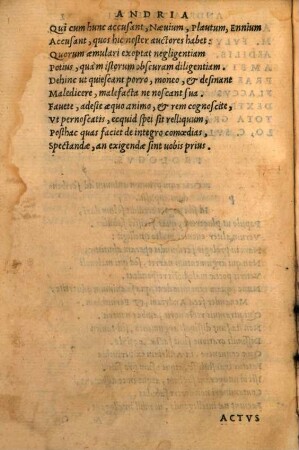 ANDRIA
Qui cum hunc accusant, Næuium, Plautum, Ennium
Accusant, quos hic noster auctores habet:
Quorum æmulari exoptat negligentiam
Potius, quàm istorum obscuram diligentiam,
Dehinc ut quiescant porro, moneo, & desinant
Maledicere, malefacta ne noscant sua.
Fauete, adeste æquo animo, & rem cognoscite,
Vt pernoscatis, ecquid spei sit relliquum,
Posthac quas faciet de integro comœdias,
Spectandæ, an exigendæ sint uobis prius.
ACTVS